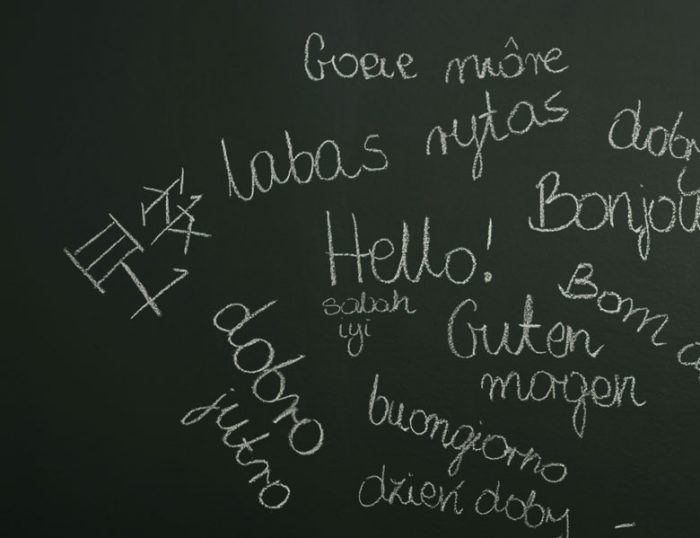 Goeie môre
labas rytas
dobr
早安
Bonjou
Hello!
sabah
iyi
Bom d
Guten
morgen
dobro
jutro
buongiorno
dzień dobry